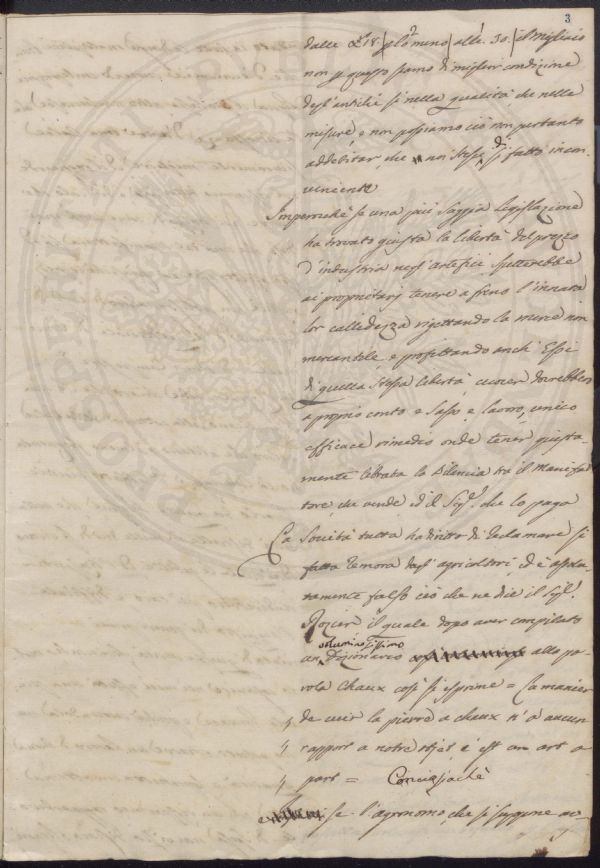 3
dalle £ 18. / p lo meno / alle. 30. / il Migliaio
non p questo siamo di miglior condizione
degl'antichi si nella qualità che nelle
misure, e non possiamo ciò non pertanto
addebitar che noi stessi di si fatto incon
veniente
Imperciochè se una più saggia Legislazione
ha trovato giusta la libertà del prezzo
d'industria negl'artefici spetterebbe
ai proprietarj tenere a freno l'innata
lor callidezza rigettando la merce non
mercantile e profittando anch'Essi
di quella stessa libertà cuocer dovrebber
a proprio conto e Sasso e lavoro, unico
efficace rimedio onde tener giusta
mente librata la Bilancia tra il Manifat
tore che vende ed il Sigr. che lo paga
La Società tutta ha diritto di reclamare si
fatta remora dagl'agricoltori, ed è assolu
tamente falso ciò che ne dice il Sigr.
Rozier il quale dopo aver compilato
voluminosissimo
un Dizionario alla pa
rola Chaux così si esprime = La manier
de cuir la pierre a chaux n'a aucun
rapport a notre objet, e est un art a
part = Conciosiachè
se l'agronomo, che si suppone ac